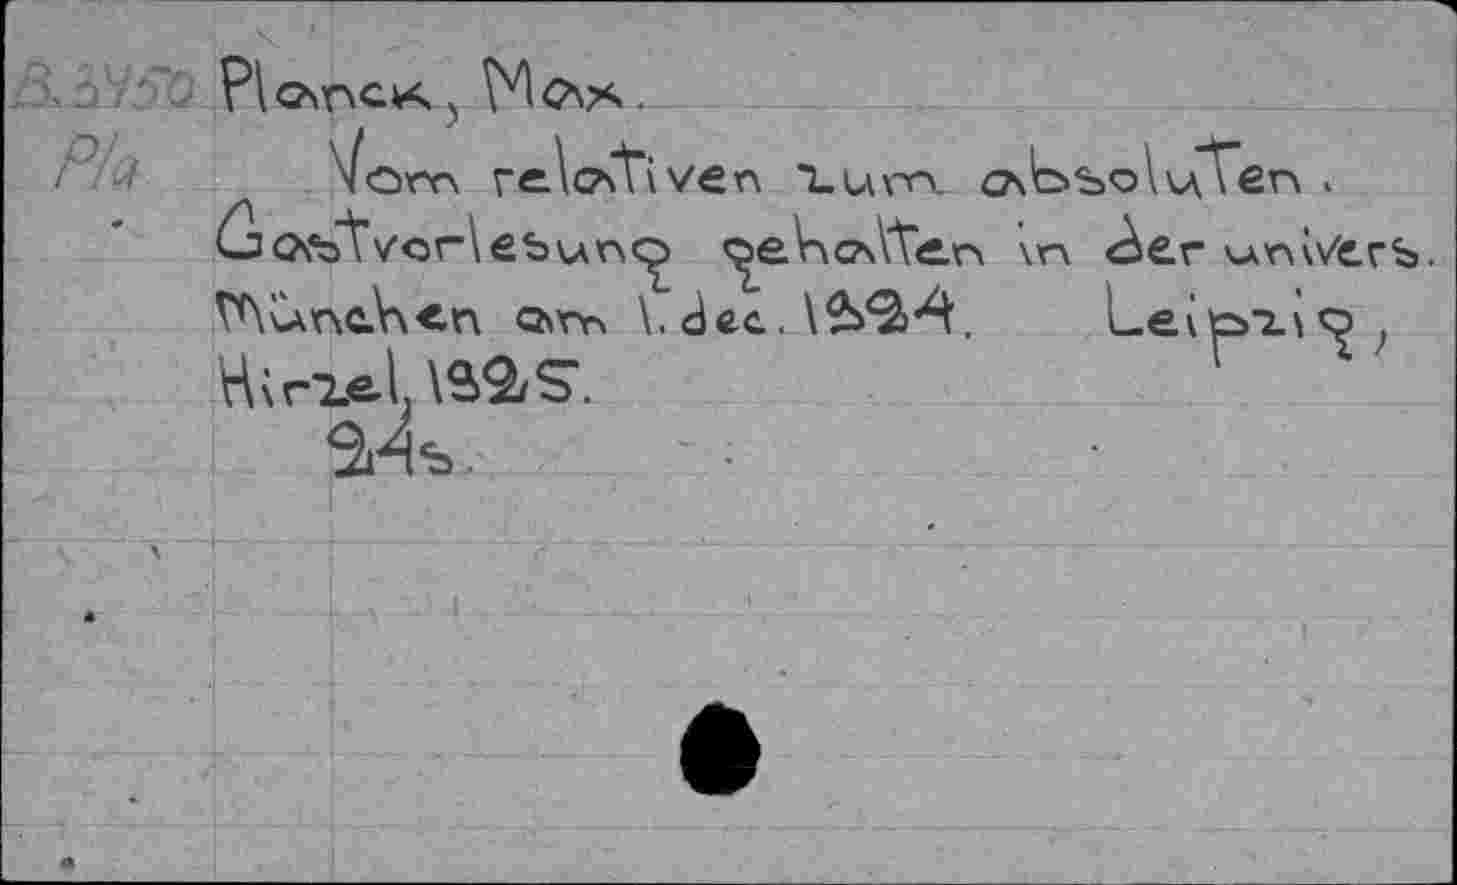 Planck, Max.
Pla
Vom relativen zum absoluten.
Gastvorlesung gehalten in der univers.
München am 1. dec. 1924. Leipzig,
Hirzel, 1925.
24s.